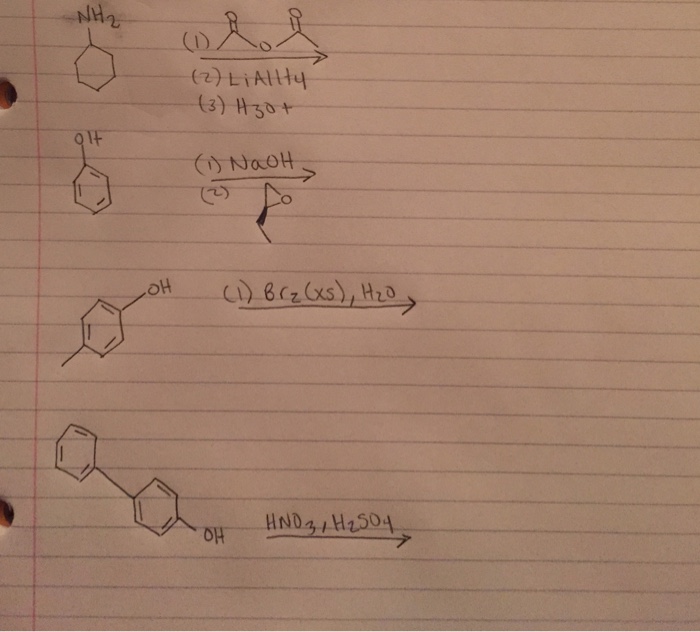 NH2
O O
(1) O
(2) LiAlH4
(3) H3O+
OH
(1) NaOH
(2) O
OH (1) Br2 (xs), H2O
OH HNO3, H2SO4